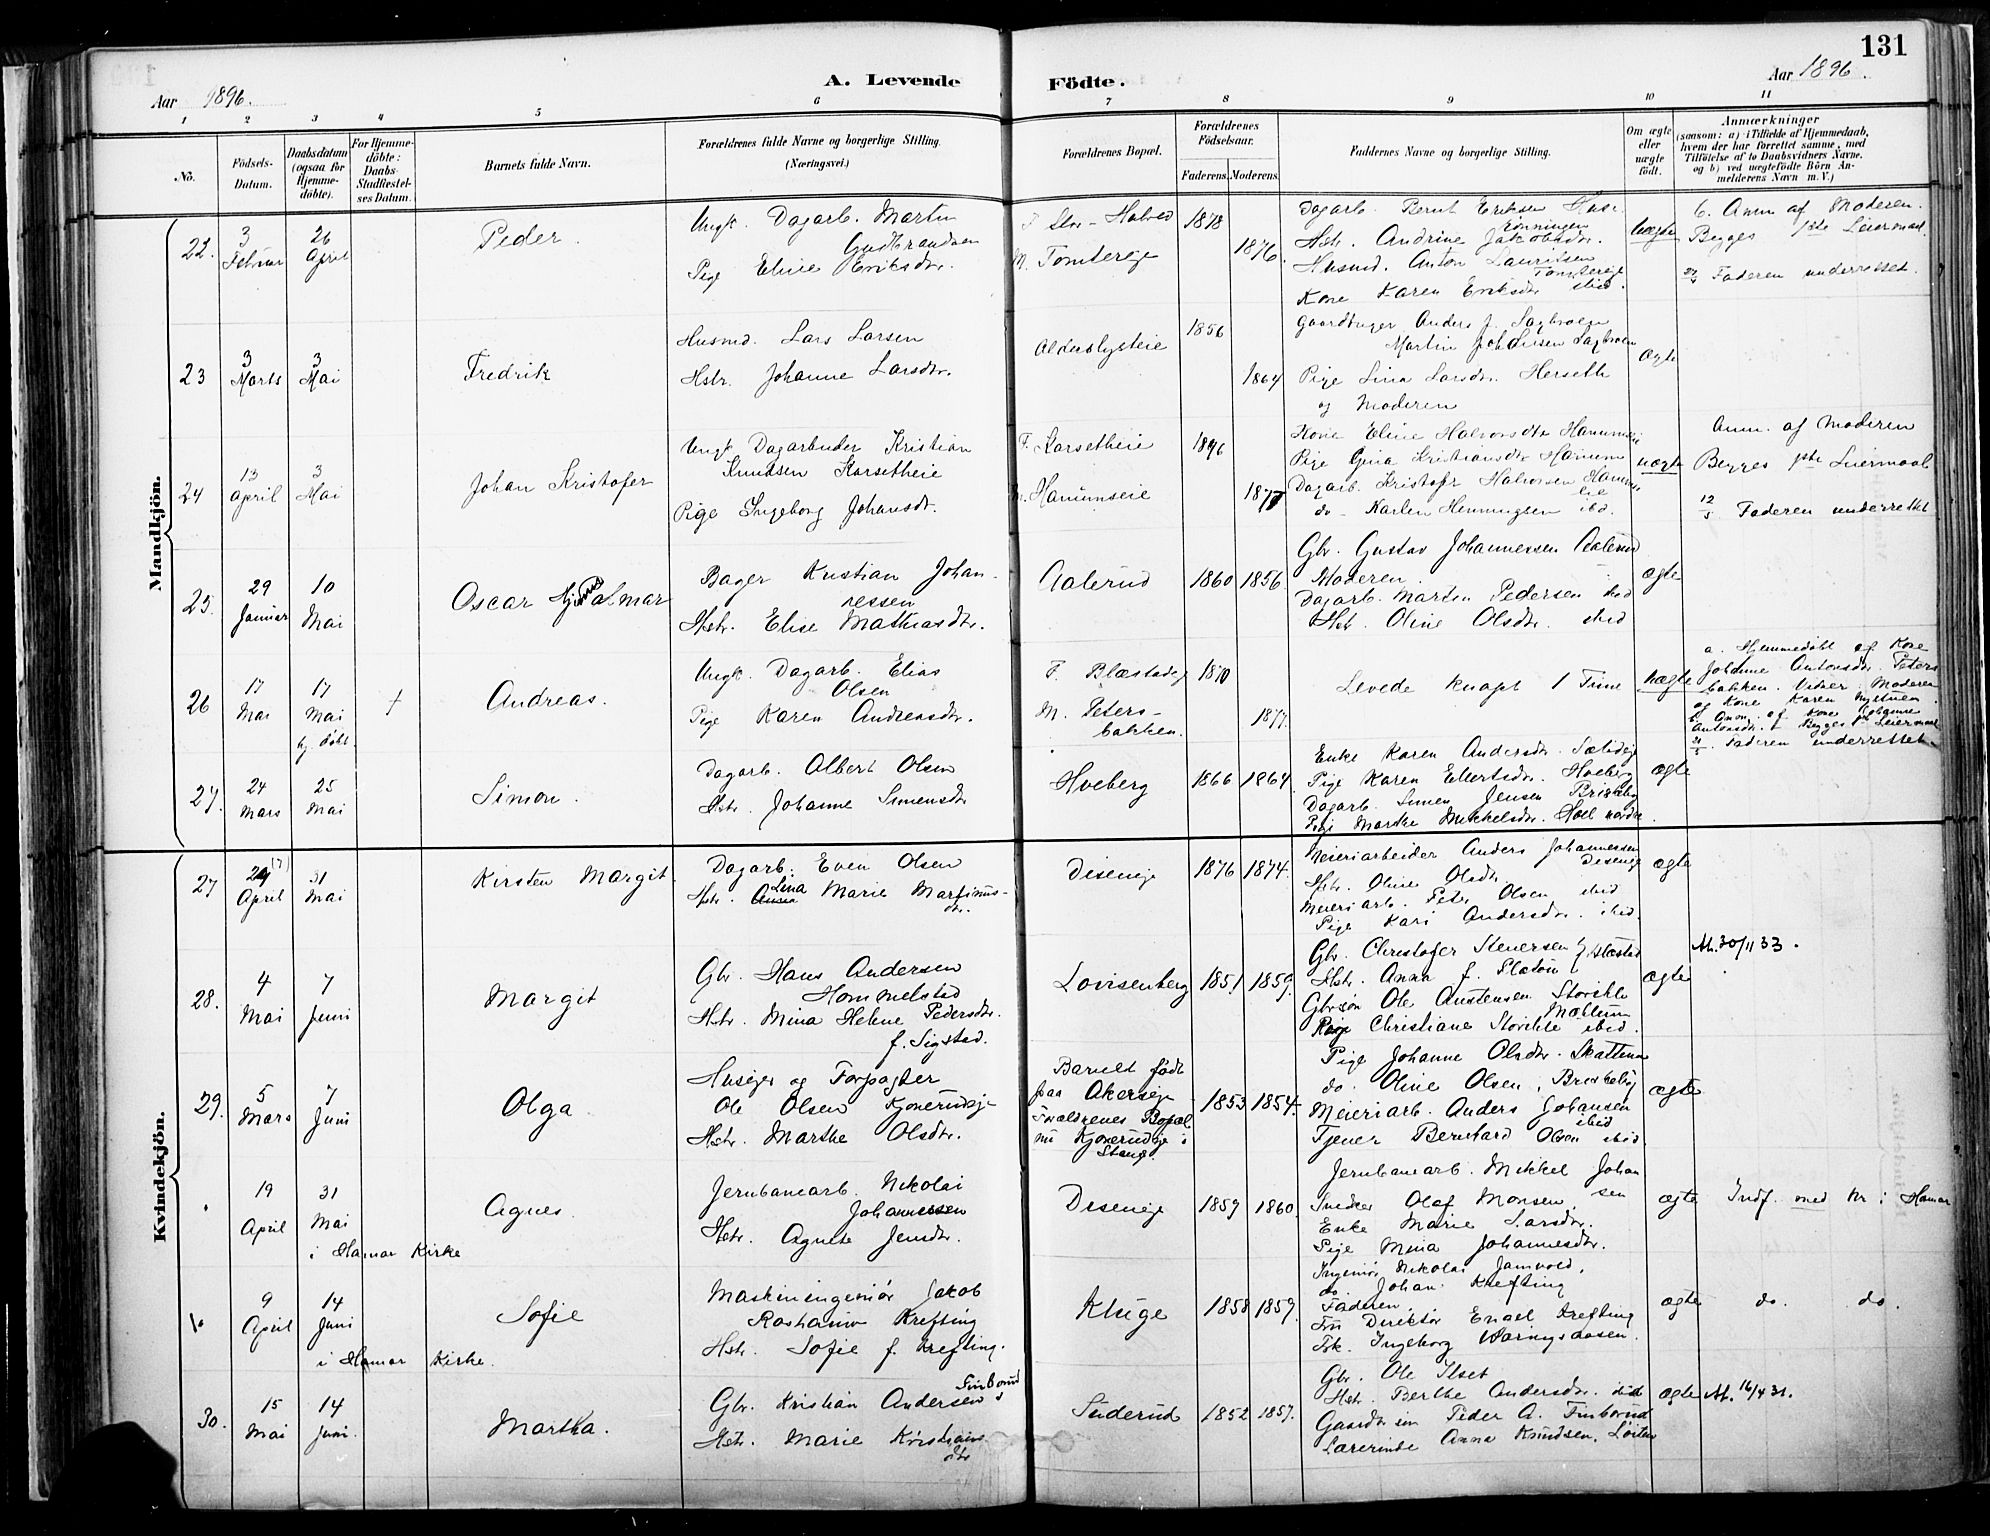 131
A. Levende Födte.
Aar 1896.
Aar 1896.
1 2 3 4 5 6 7 8 9 10 11
No.
Födsels-Datum.
Daabsdatum (ogsaa for Hjemmedöbte).
For Hjemmedöbte: Daabs-Stadfæstelses Datum.
Barnets fulde Navn.
Forældrenes fulde Navne og borgerlige Stilling.
(Næringsvei.)
Forældrenes Bopæl.
Forældrenes Födselsaar.
Faderens. Moderens.
Faddernes Navne og borgerlige Stilling.
Om ægte eller uægte födt.
Anmærkninger
(saasom: a) i Tilfælde af Hjemmedaab, hvem der har forrettet samme, med Tilföielse af to Daabsvidners Navne, og b) ved uægtefödte Börn Anmelderens Navn m. V.)
Mandkjön.
22.
3 Februar
26 April
Peder.
Ungk. Dagarb. Martin
Gudbrandsen
Pige Eline Eriksdtr.
Halved
M. Tomtereie
1878
1876.
Dagarb. Bernt Eriksen
Hstr. Andrine Jakobsdtr.
Husmd. Anton Lauritsen
Tomtereie
Kone Karen Eriksdtr. ibid.
uægte
b. Anm. af Moderen.
Begges 1ste Leiermaal
Faderen underrettet.
23
3 Marts
3 Mai
Fredrik
Husmd. Lars Larsen
Hstr. Johanne Larsdtr.
Alderslysteie
1856
1864
Gaardbruger Anders
Martin Johansen
Pige Lina Larsdtr. Herseth
og Moderen
ægte
24
13 April
3 Mai
Johan Kristofer
Ungk. Dagarbeider Kristian
Knudsen Korsetheie
Pige Ingeborg Johansdr.
F. Korsetheie
M. Hanumseie
1896
1877
Kone Eline Halvorsdtr
Pige Gina Kristiansdtr Hanum
Dagarb. Kristofer Halvorsen
eie
do - Karlen Hemmingsen ibd.
uægte
Anm. af Moderen
Begges 1ste Leiermaal
12/5 Faderen underrettet
25.
29 Januar
10 Mai
Oscar Hjalmar
Bager Kristian Johan-
nessen
Hstr. Elise Mathiasdtr.
Aalerud
1860 1856
Gbr. Gustav Johannessen Aalerud
Moderen.
Dagarb. Martin Pedersen ibid
Hstr. Oline Olsdtr. ibid
ægte
26
17 Mai
17 Mai
hj. döbt
+
Andreas.
Ungk. Dagarb. Elias
Olsen
Pige Karen Andreasdtr.
F. Blæstadeie
M. Peters-
bakken.
1870
1877.
Levede knapt 1 Time
uægte
a. Hjemmedöbt af Kone
Johanne Antonsdtr. Peters
bakken. Vidner: Moderen
og Kone Karen
b. Anm. af Kone Johanne
Antonsdtr. Begges 1ste Leiermaal
Faderen underrettet.
27.
24 Mars
25 Mai
Simon.
Dagarb. Albert Olsen
Hstr. Johanne Simensdtr
Hveberg
1866 1864.
Enke Karen Andersdtr.
Pige Karen Ellertsdtr. Hveberg
Dagarb. Simen Jensen
Pige Marthe Mikkelsdtr. Hoel nordre.
ægte
Kvindekjön.
27
April
31 Mai
Kirsten Margit.
Dagarb. Even Olsen
Hstr. Lina Marie Martinus-
dtr.
Diseneie
1876 1874.
Meieriarbeider Anders Johannessen
Diseneie
Hstr. Oline Olsdtr. ibid
Meieriarb. Peter Olsen
Pige Kari Andersdtr. ibid.
ægte
28.
4 Mai
7 Juni
Margit
Gbr. Hans Andersen
Hommelstad
Hstr. Mina Helene Pedersdtr.
f. Sigstad.
Lovisenberg
1851 1859.
Gbr. Christofer Stenersen
Hstr. Anna f.
Gbrsön Ole Austensen Storihle
Mæhlum
Pige Christiane Storihle ibid.
ægte
At. 30/11 33.
29.
5 Mars
7 Juni
Olga
Huseier og Forpagter
Ole Olsen Kjonerudeie
Hstr. Marthe Olsdtr.
Barnet födt
paa Akerseie
Forældrenes Bopæl
nu Kjonerudeie i
Stange.
1853 1854.
Pige Johanne Olsdtr.
do. Oline Olsen,
Meieriarb. Anders Johansen
ibid
Tjener Bernhard Olsen ibid.
ægte
19 April
31 Mai
i Hamar Kirke
Agnes.
Jernbanearb. Nikolai
Johannessen
Hstr. Agnete Jensdtr.
Diseneie
1859 1860.
Jernbanearb. Mikkel Johan
sen
Snedker Olaf Monsen
Enke Marie Larsdtr.
Pige Mina Johannesdtr.
ægte
Indf. med Nr i Hamar
9 April
14 Juni
i Hamar Kirke.
Sofie
Maskiningeniör Jakob
Krefting
Hstr. Sofie f. Krefting.
Kluge
1858 1859.
Ingeniör Nikolai
do. Johan Krefting
Faderen.
Fru Direktör Krefting
Frk. Ingeborg
ægte
do. do.
30.
15 Mai
14 Juni.
Martha.
Gbr. Kristian Andersen
Finborud
Hstr. Marie Kristians
dtr
Suderud
1852 1857.
Gbr. Ole Ilset
Hstr. Berthe Andersdtr. ibid
Gaardbr sön Peder A. Finborud
Lærerinde Anna Knudsen, Löiten
ægte
At. 16/4 31.